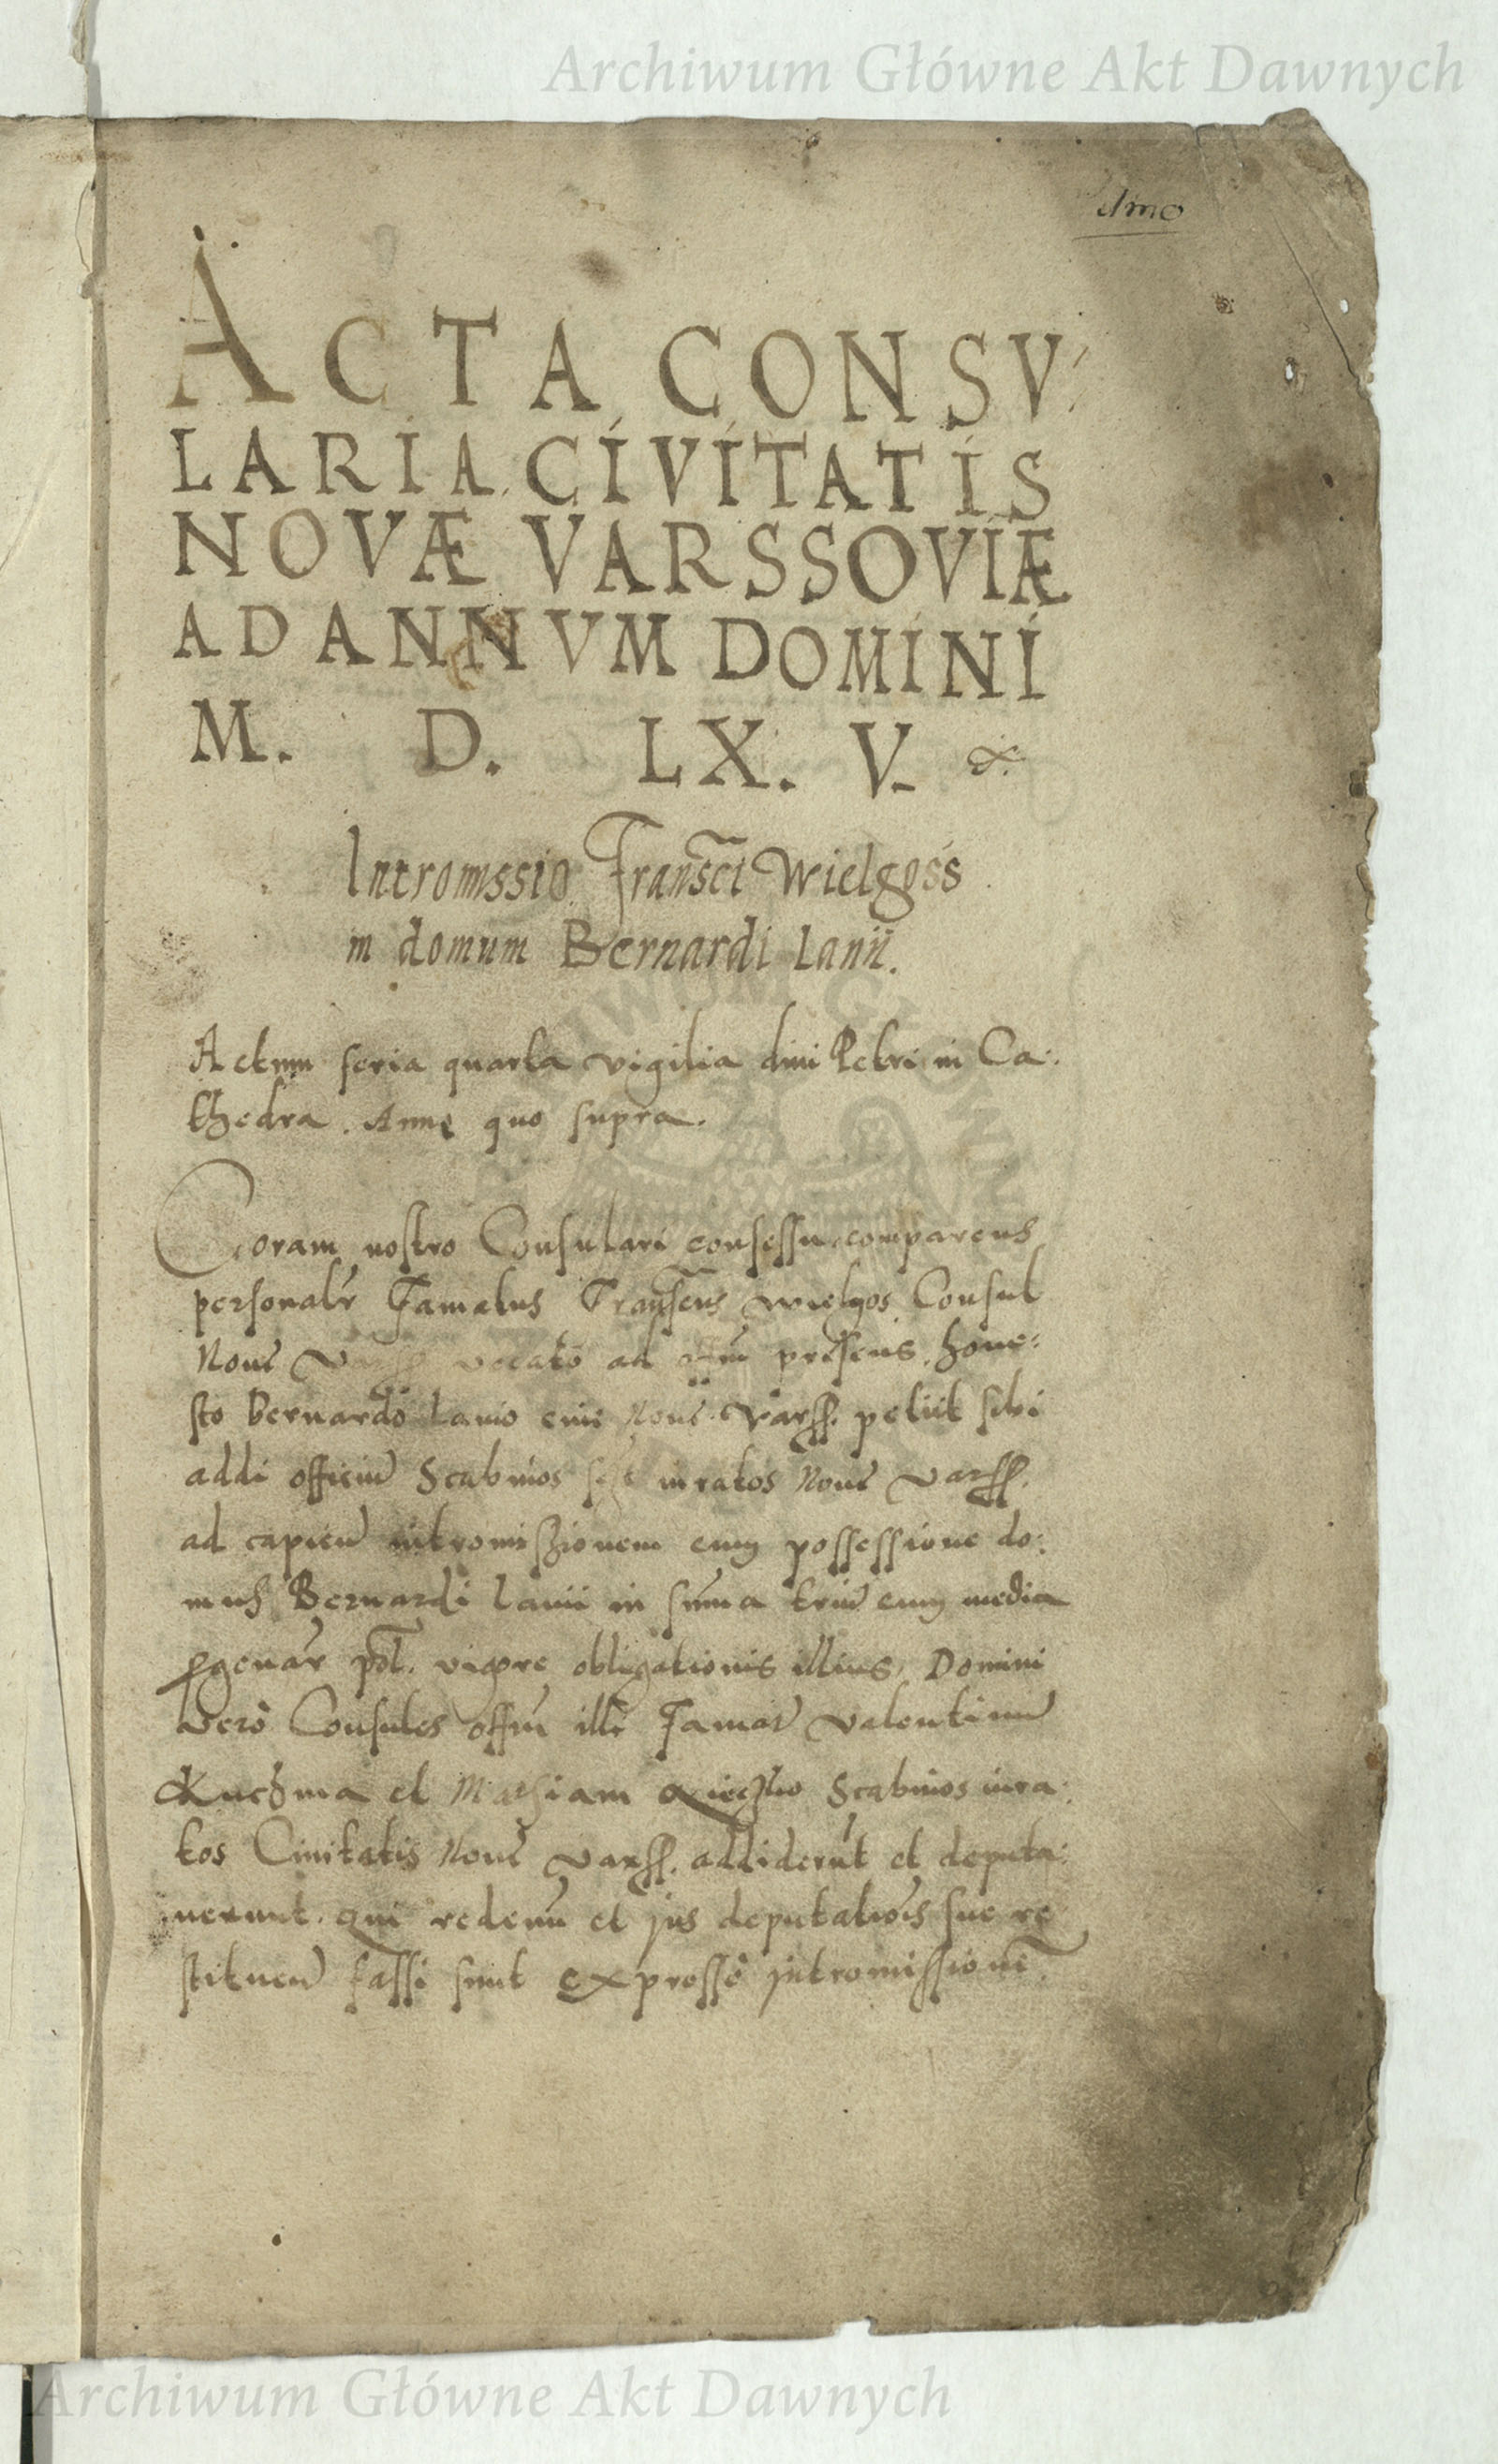 Archiwum Główne Akt Dawnych
ACTA CONSV
LARIA CIVITATIS
NOVÆ VARSSOVIÆ
AD ANNVM DOMINI
M. D. LX. V. &.
Intromissio Fransci Wielgoss
in domum Bernardi Lanii.
Actum feria quarta vigilia divi Petri in Ca:
thedra. Anno quo supra.
Coram nostro Consulari consessu comparens
personalr Famatus Franscus Wielgos Consul
Noue Varss. vocato ad offm presens, hone:
sto Bernardo Lanio ciue Noue Varss. petiit sibi
addi officiu Scabinos iuratos Noue Varss.
ad capien intromissionem cum possessione do:
mus Bernardi Lanii in sum̄a triu cum media
sxgenar pol. vigore obligationis illius, Domini
vero Consules offm ille Famat Valentinu
et Mathiam Scabinos iura:
tos Ciuitatis Noue Varss. addiderut et deputa:
uerunt. qui redeun et jus deputatiois sue re
stituen fassi sunt expresse jntromissione
Archiwum Główne Akt Dawnych